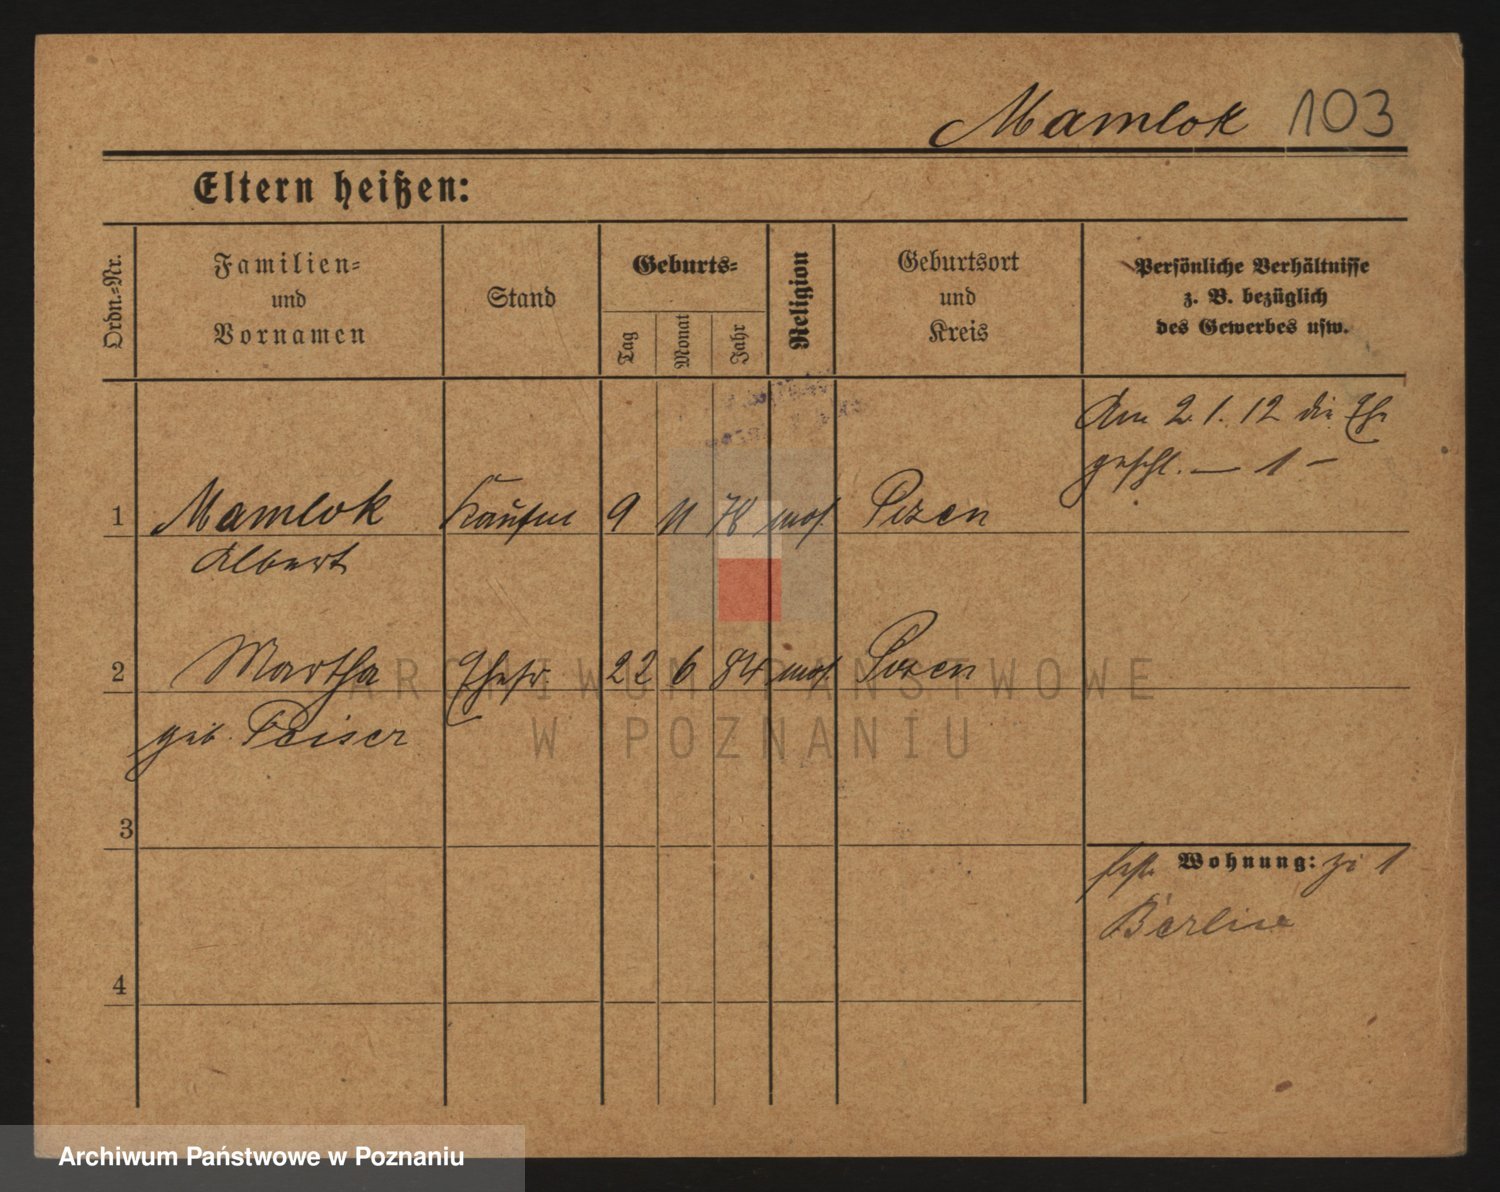 Mamlok 103
Eltern heißen:
Ordn.-Nr.
Familien-
und
Vornamen
Stand
Geburts-
Tag
Monat
Jahr
Religion
Geburtsort
und
Kreis
Persönliche Verhältnisse
z. B. bezüglich
des Gewerbes usw.
Am 2. 1. 12 die Ehe
geschl. — 1 —
1 Mamlok Kaufm 9 11 78 mos. Posen
Albert
2 Martha Ehefr. 22 6 84 mos. Posen
geb. Peiser
3
Wohnung: zu 1
Berlin
4
ARCHIWUM PAŃSTWOWE
W POZNANIU
Archiwum Państwowe w Poznaniu